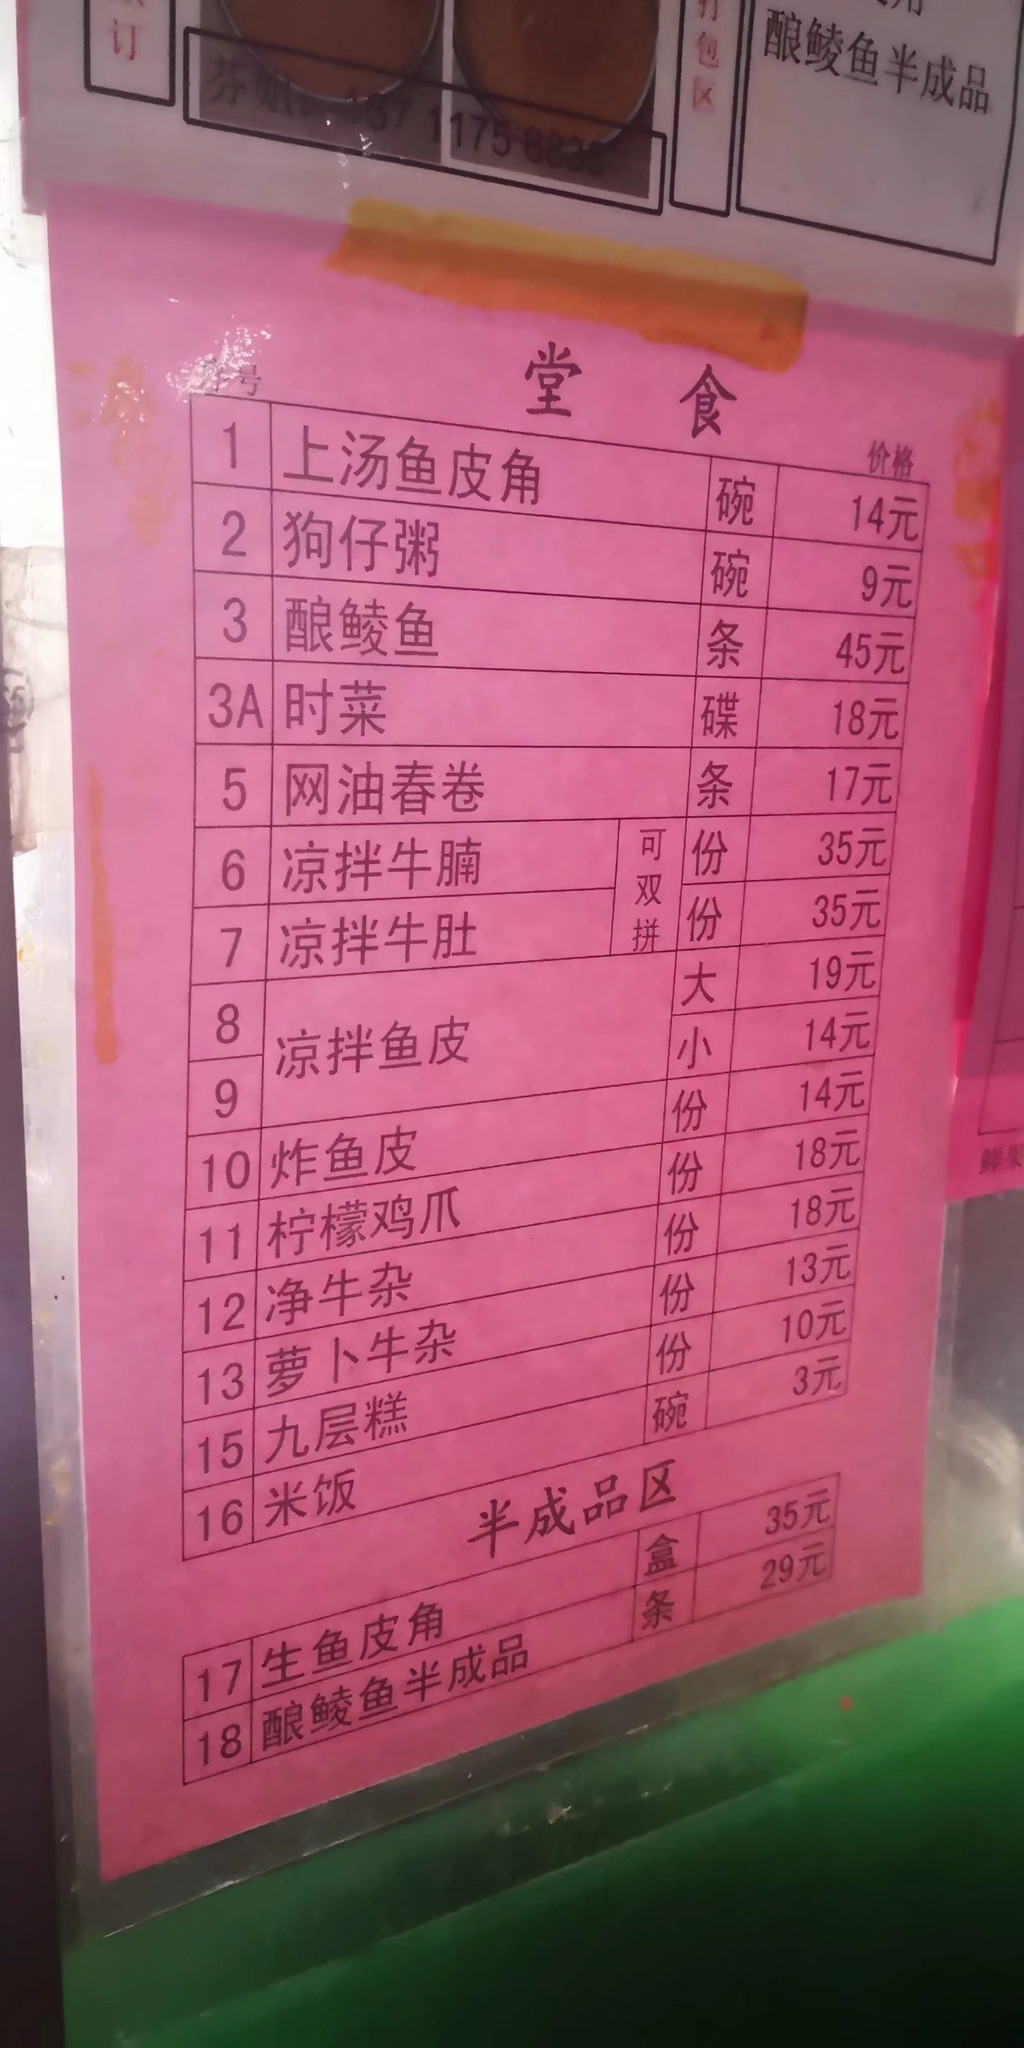 订
打
包
区
酿鲮鱼半成品
堂 食
号 价格
1 上汤鱼皮角 碗 14元
2 狗仔粥 碗 9元
3 酿鲮鱼 条 45元
3A 时菜 碟 18元
5 网油春卷 条 17元
6 凉拌牛腩 可双拼 份 35元
7 凉拌牛肚 份 35元
8 凉拌鱼皮 大 19元
9 小 14元
10 炸鱼皮 份 14元
11 柠檬鸡爪 份 18元
12 净牛杂 份 18元
13 萝卜牛杂 份 13元
15 九层糕 份 10元
16 米饭 碗 3元
半成品区
17 生鱼皮角 盒 35元
18 酿鲮鱼半成品 条 29元